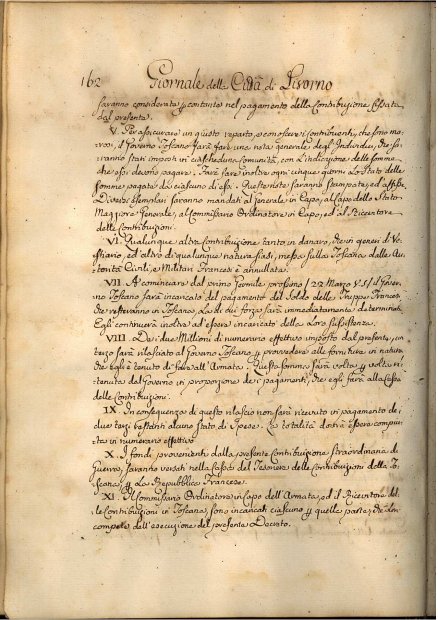 162 Giornale della Città di Livorno
saranno considerata p contante nel pagamento della Contribuzione fissata
dal presente.
V. Per assicurare un giusto reparto, e conoscere i contribuenti, che sono mo-
rosi, il Governo Toscano farà fare una nota generale degl'Individui, che sa-
ranno stati imposti in ciascheduna Comunità, con l'indicazione delle somme,
che essi devono pagare. Farà fare inoltre ogni cinque giorni lo stato delle
somme pagate da ciascuno di essi. Queste note saranno stampate, ed affisse.
Diversi esemplari saranno mandati al Generale in Capo, al Capo dello Stato
Maggiore Generale, al Commissario Ordinatore in Capo, ed al Ricevitore
delle Contribuzioni.
VI. Qualunque altra Contribuzione tanto in danaro, che in generi di Ve-
stiario, ed altro di qualunque natura siasi, messa sulla Toscana dalle Au-
torità Civili, e Militari Francesi è annullata.
VII. A cominciare dal primo Germile prossimo (22 Marzo V.S.) il Gover-
no Toscano sarà incaricato del pagamento del Soldo delle Truppe Francesi,
che resteranno in Toscana, la di cui forza sarà immediatamente determinata.
Egli continuerà inoltre ad essere incaricato della loro sussistenza.
VIII. Dei due Millioni di numerario effettivo imposto dal presente, un
terzo sarà rilasciato al Governo Toscano p provvedere alle forniture in natura,
che egli è tenuto di fare all'Armata. Questa somma sarà volta p volta ri-
tenuta dal Governo in proporzione dei pagamenti, che egli farà alla Cassa
delle Contribuzioni.
IX. In conseguenza di questo rilascio non sarà ricevuto in pagamento de'
due terzi restanti alcuno stato di spese. La totalità dovrà essere compiu-
ta in numerario effettivo.
X. I fondi provenienti dalla presente Contribuzione straordinaria di
Guerra, saranno versati nella Cassa del Tesoriere delle Contribuzioni della To-
scana, p la Repubblica Francese.
XI. Il Commissario Ordinatore in Capo dell'Armata, ed il Ricevitore del-
le Contribuzioni in Toscana, sono incaricati ciascuno p quella parte, che loro
compete dell'esecuzione del presente Decreto.